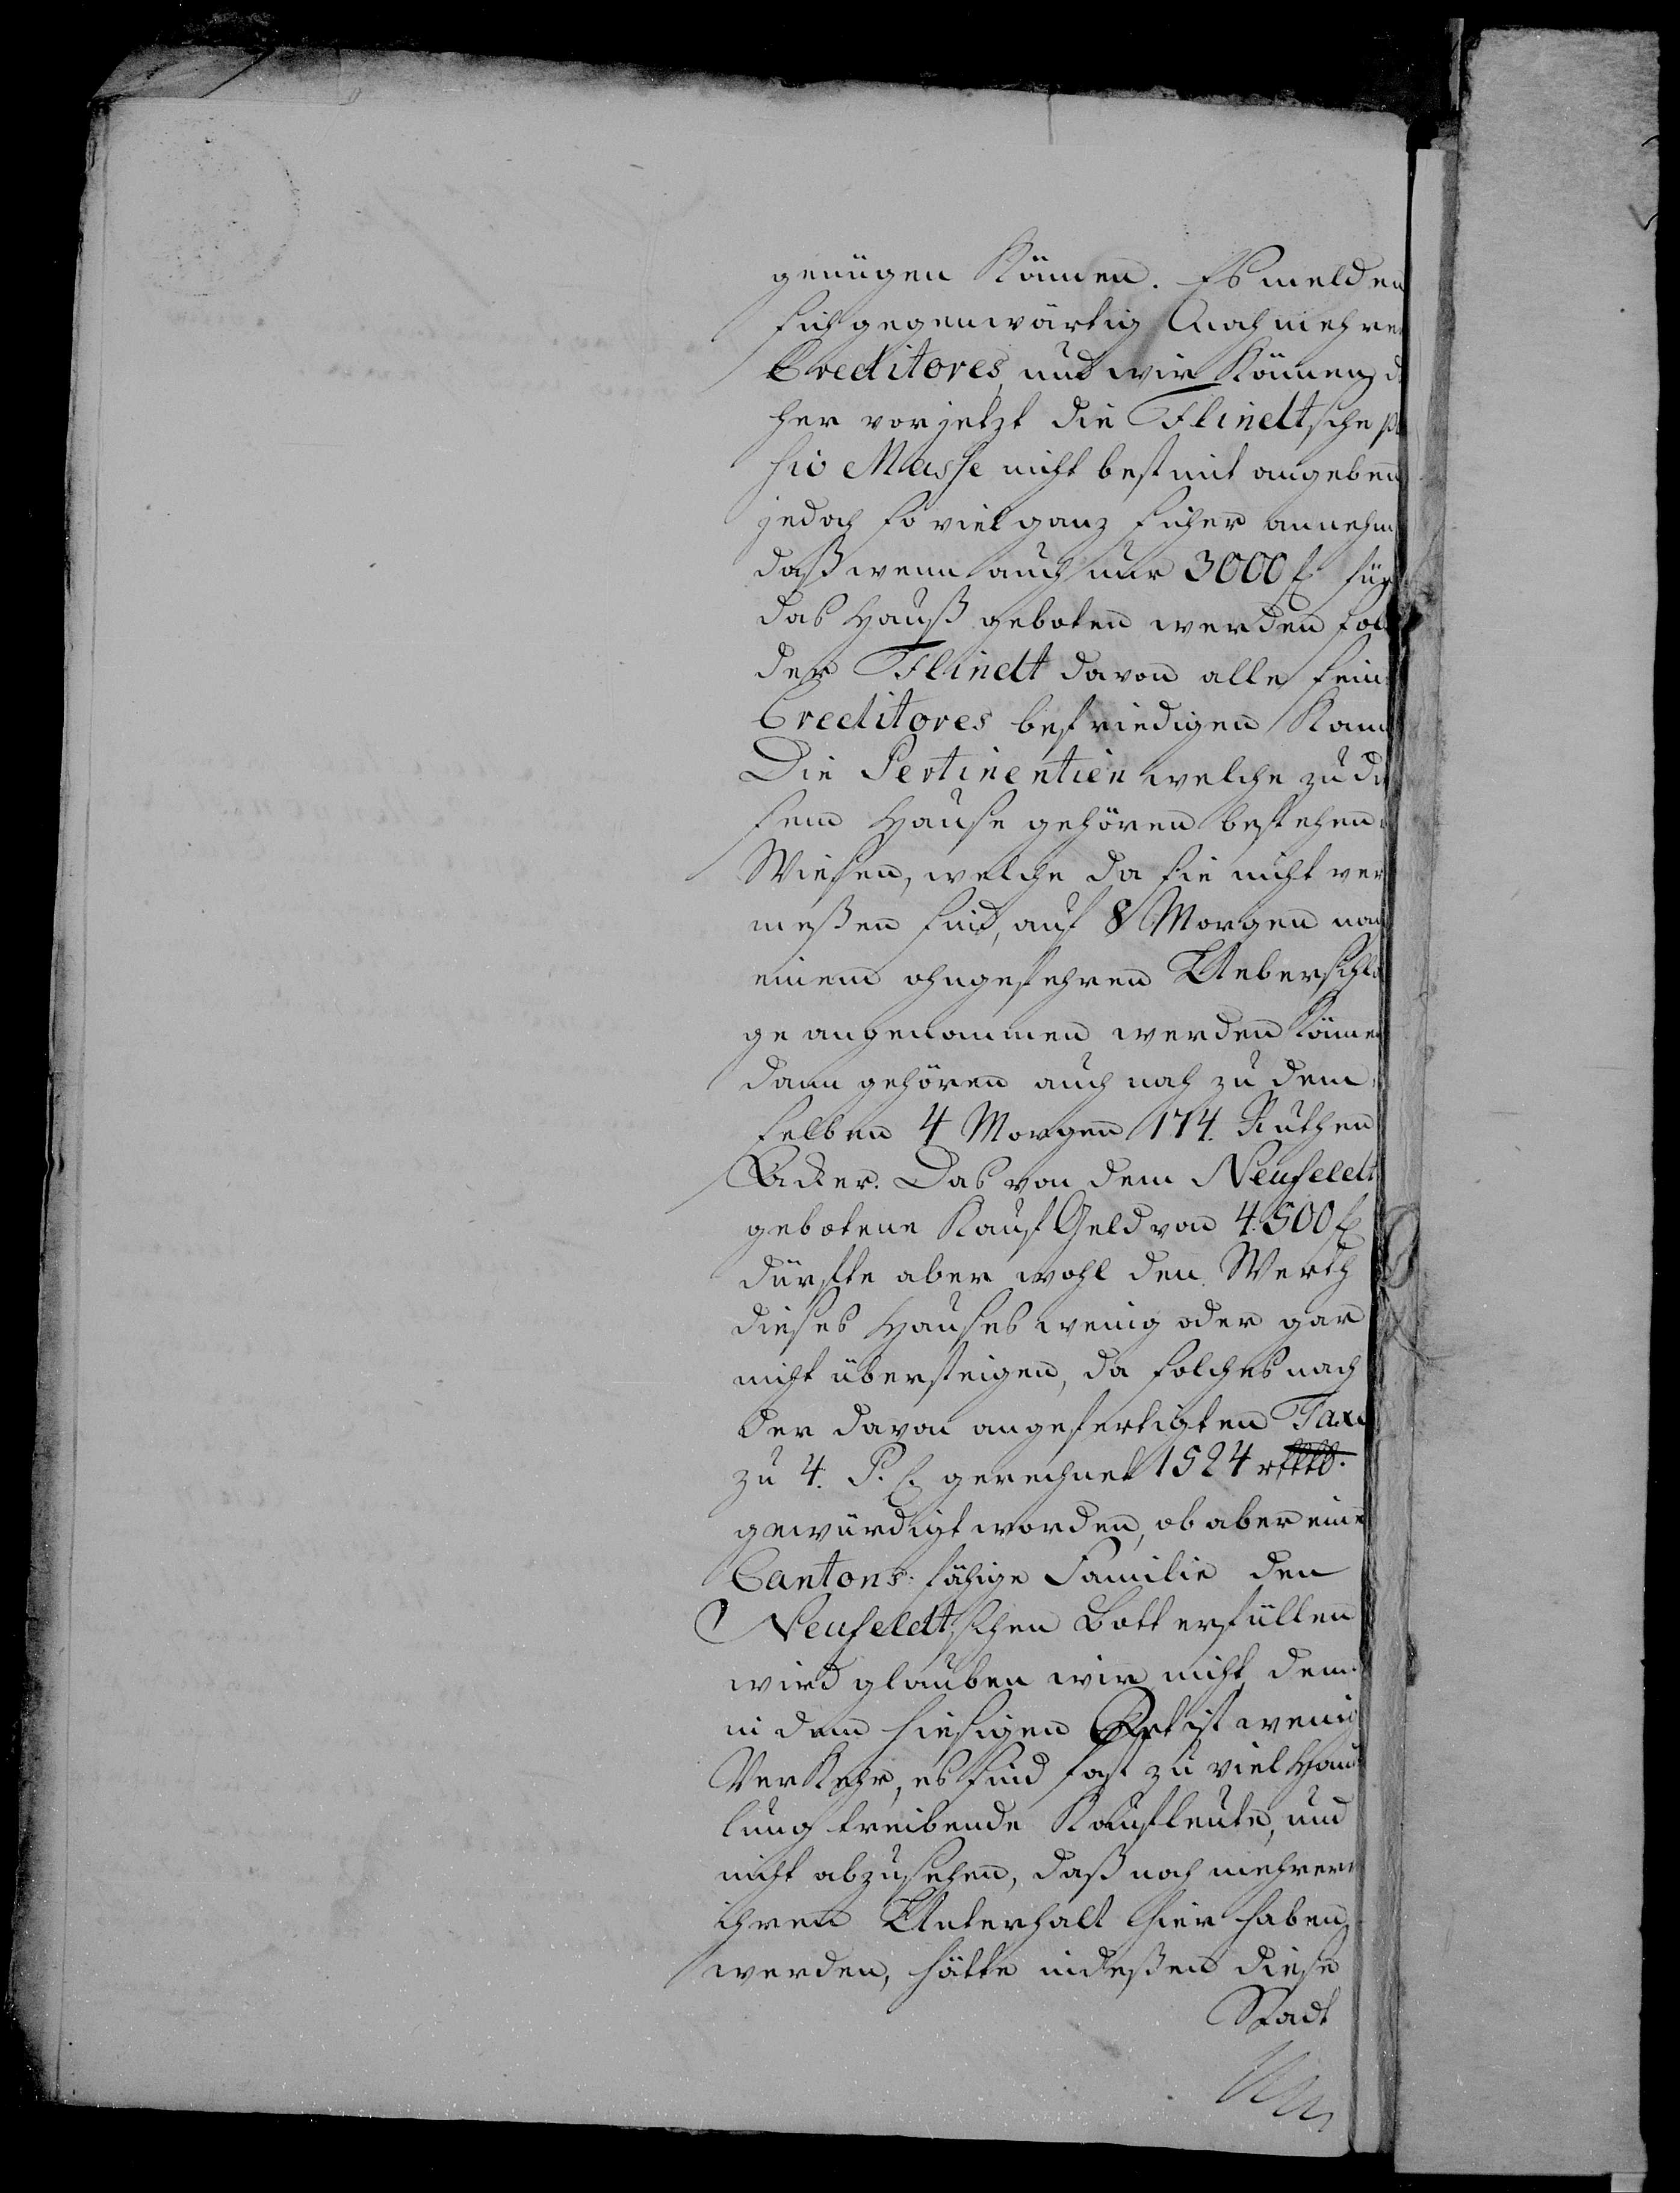 genügen können. Es melden
sich gegenwärtig noch mehre
Creditores, und wir können d
her vor jetzt die Flindtsche p
siv Masse nicht bestimt angeben
jedoch so viel ganz sicher annehm
daß wenn auch nur 3000 f für
das Hauß geboten werden sol
der Flindt davon alle sein
Creditores befriedigen kann
Die Pertinentien welche zu di
sem Hause gehören bestehen
Wiesen, welche da sie nicht ver
meßen sind, auf 8 Morgen nach
einem ohngefehren Ueberschla
ge angenommen werden können
dann gehören auch noch zu dem
selben 4 Morgen 174. Ruthen
Acker. Das von dem Neufeldt
gebotene Kauf Geld von 4500 f
dürfte aber wohl den Werth
dieses Hauses wenig oder gar
nicht übersteigen, da solches nach
der davon angefertigten Taxe
zu 4. P. C. gerechnet 1524 rthlr.
gewürdigt worden, ob aber eine
Cantons fähige Familie den
Neufeldtschen Bott erfüllen
wird glauben wir nicht, denn
in dem hiesigen Ort ist wenig
Verkehr, es sind fast zu viel Hand
lung treibende Kaufleute, und
nicht abzusehen, daß noch mehrere
ihren Unterhalt hier haben
werden, hätte indeßen diese
Stadt